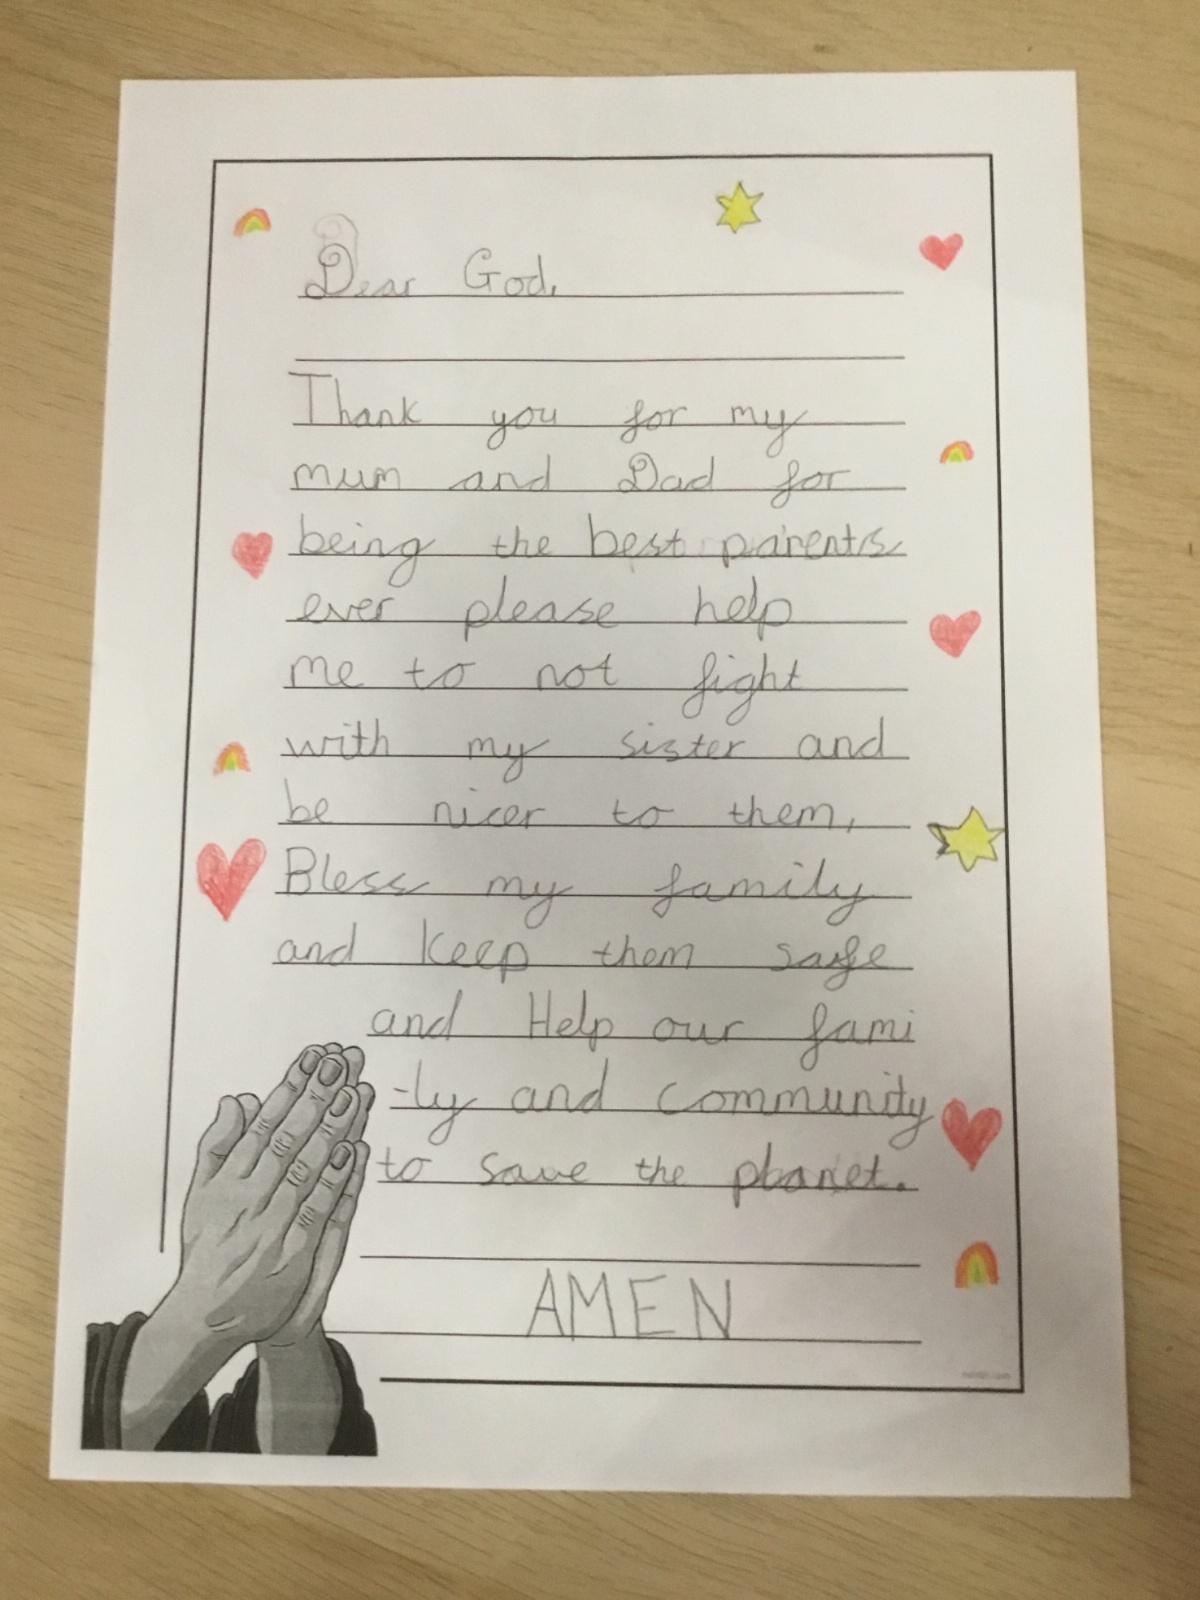 Dear God,
Thank you for my
mum and Dad for
being the best parents
ever please help
me to not fight
with my sister and
be nicer to them,
Bless my family
and keep them safe
and Help our fami
-ly and community
to save the planet.
AMEN